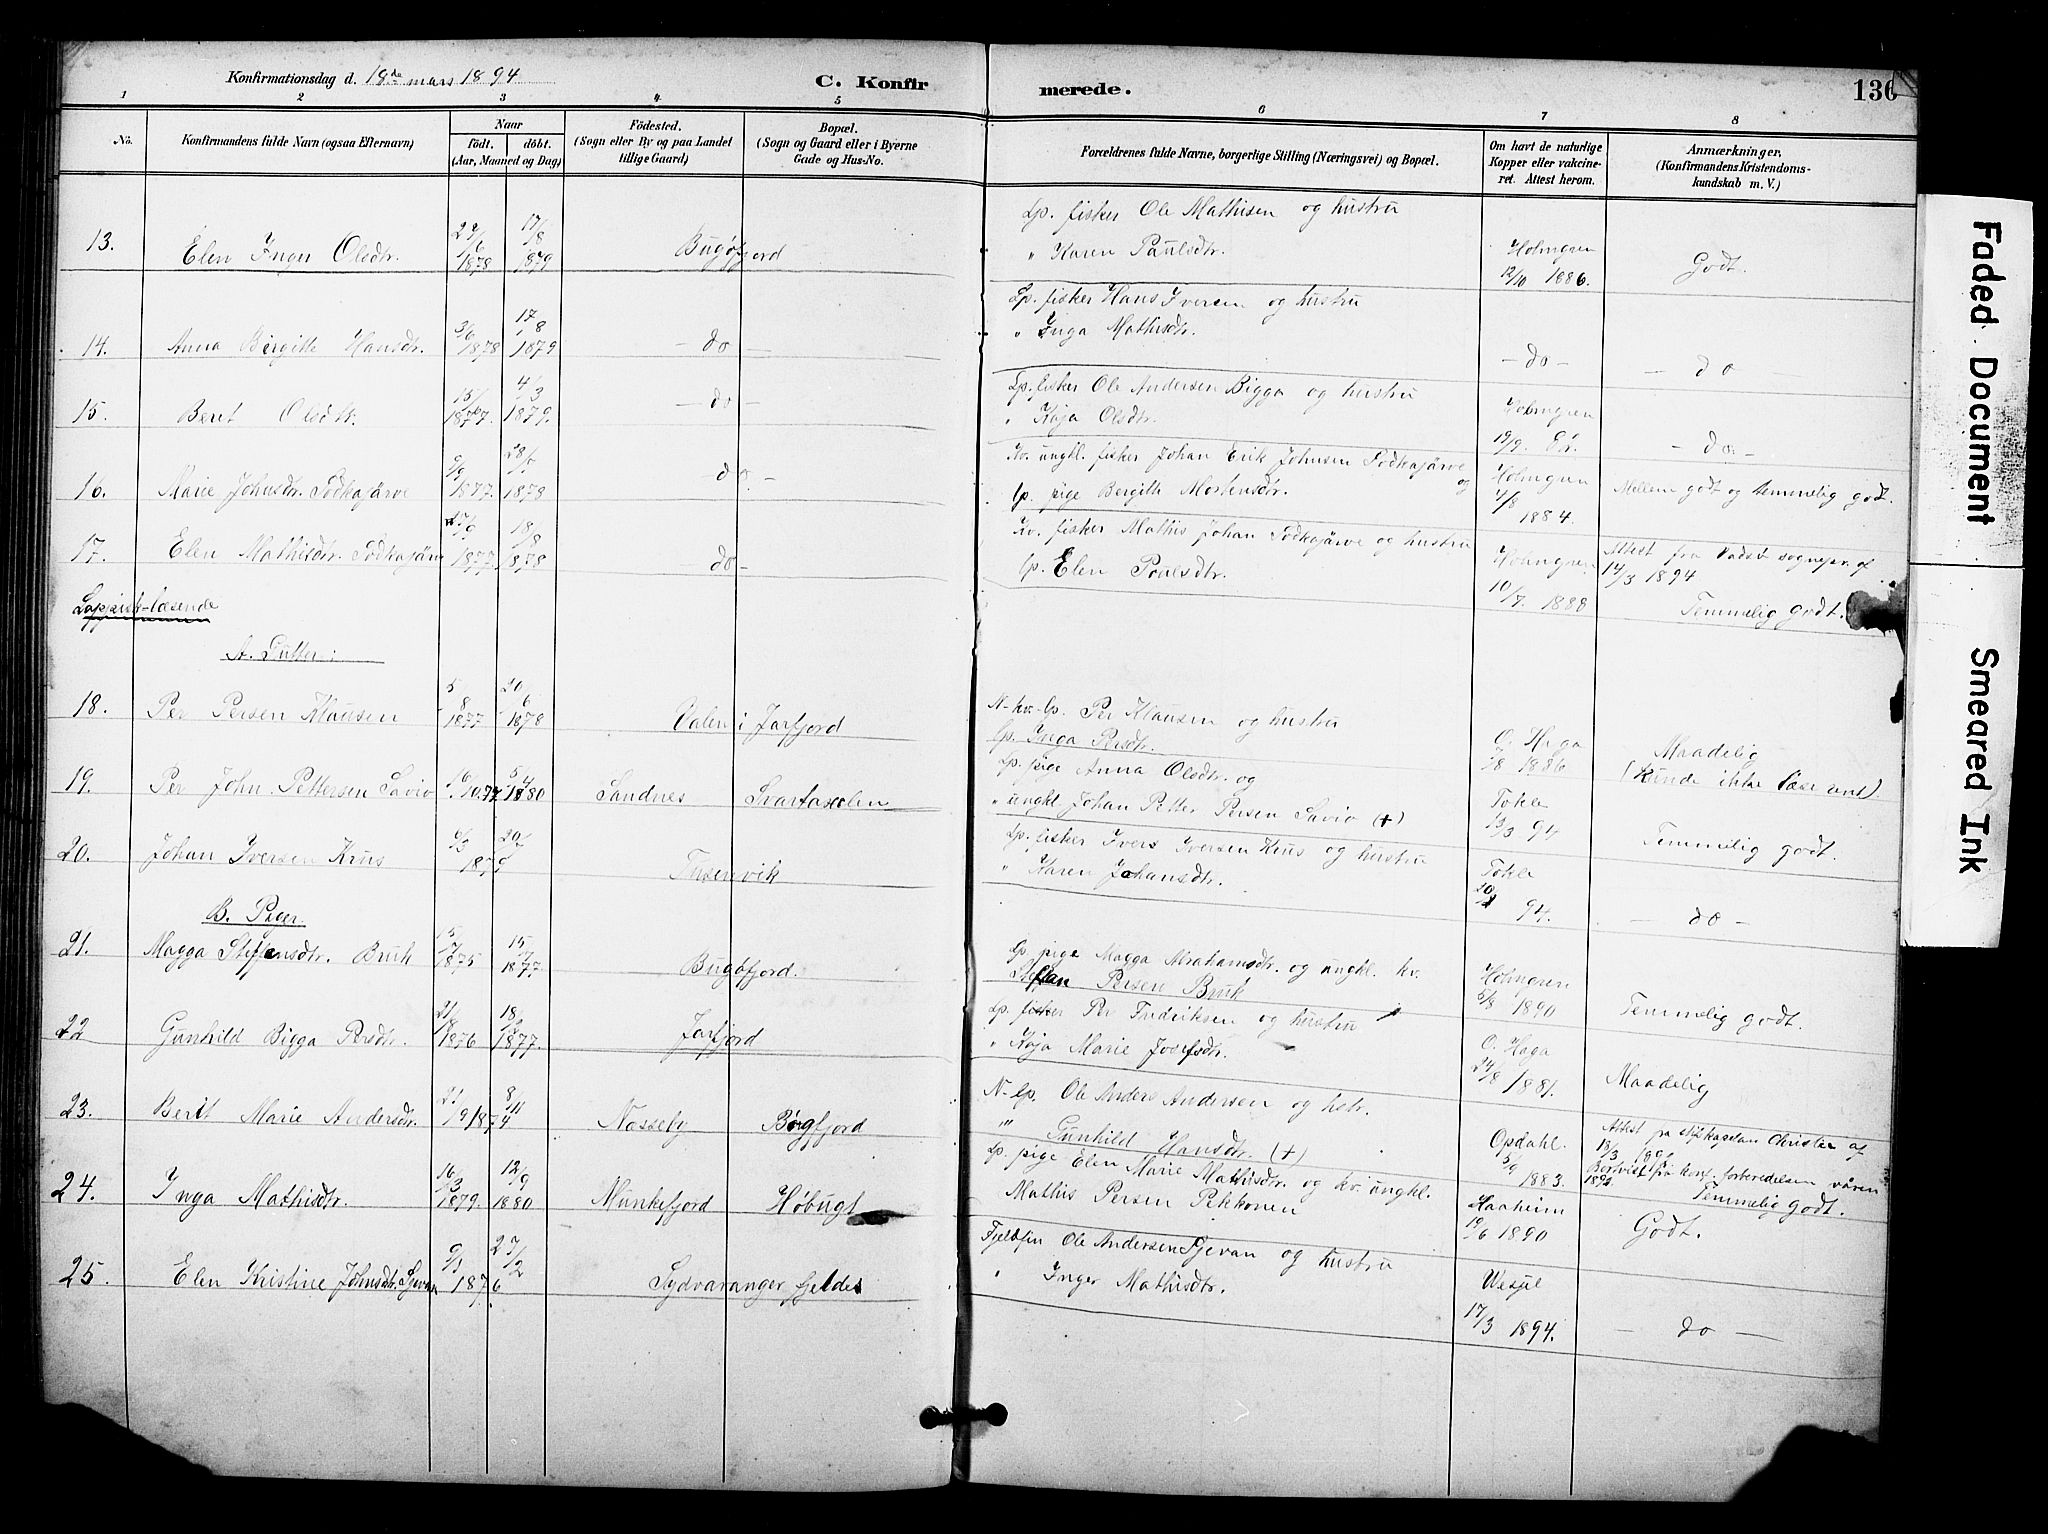 Konfirmationsdag d. 18de mars 1894
C. Konfir merede.
136
1 2 3 4 5 6 7 8
No.
Konfirmandens fulde Navn (ogsaa Efternavn)
Naar
födt. döbt.
(Aar, Maaned og Dag)
Födested.
(Sogn eller By og paa Landet
tillige Gaard)
Bopæl.
(Sogn og Gaard eller i Byerne
Gade og Hus-No.
Forældrenes fulde Navne, borgerlige Stilling (Næringsvei) og Bopæl.
Om havt de naturlige
Kopper eller vakcine-
ret. Attest herom.
Anmærkninger.
(Konfirmandens Kristendoms-
kundskab m. V.)
13. Elen Inger Olsdtr. 27/6 1878 17/8 1879 Bugöfjord
Lp. fisker Ole Mathisen og hustru
" Karen Paulsdtr. Holmgren 12/10 1886. Godt.
14. Anna Bergitte Hansdtr. 3/6 1878 17/8 1879 - do -
Lp. fisker Hans Iversen og hustru
" Inga Mathisdtr. - do - - do -
15. Beret Olsdtr. 1877. 4/3 1879. - do -
Lp. fisker Ole Andersen Bigga og hustru
" Kaja Olsdtr. Holmgren 19/9. - do. -
16. Marie Johnsdtr. Sodkajärve 9/9 1877. 1878 do.
Kv. ungkl. fisker Johan Erik Johnsen Sodkajärve og
lp. pige Bergith Mortensdtr. Holmgren 1884. Mellem godt og temmelig godt.
17. Elen Mathisdtr. Sodkajärve 1877. 18/8 1878 - do -
Kv. fisker Mathis Johan Sodkajärve og hustru
lp. Elen Poulsdtr. Holmgren 10/7. 1888 Attest fra Vadsö sognepr. af
14/3 1894
Temmelig godt.
Lappisk-læsende
A. Gutter:
18. Per Persen Klausen 5/8 1877 20/6 1878 Valen i Jarfjord
N-kv.-lp. Per Klausen og hustru
lp. Inga Persdtr. O. Haga 1886 Maadelig
(Kunde ikke læse ent).
19. Per John Pettersen Savio 16/10.77. 5/4 1880 Sandnes
Lp. pige Anna Olsdtr. og
" ungkl Johan Petter Persen Savio (+) Tokle 13/3 94 Temmelig godt.
20. Johan Iversen Krus 6/3 1879
Lp. fisker Ivers Iversen Krus og hustru
" Karen Johansdtr. Tokle 94. - do -
B. Piger.
21. Magga Steffensdtr. Bruk 15/7 1875 15/7 1877 Bugöfjord.
Lp. pige Magga Abrahamsdtr. og ungkl. kv.
Steffan Persen Bruk Holmgren 5/8 1890 Temmelig godt.
22 Gunhild Bigga Persdtr. 1876 1877. Jarfjord
Lp. fisker Per Fredriksen og hustru
" Kaja Marie Josefsdtr. O. Haga 24/8 1881. Maadelig
23. Berit Marie Andersdtr. Nasseby Bögfjord
N-lp. Ole Anders Andersen og hstr.
"" Gunhild Hansdtr. (+) Opdahl. 5/9 1883. Attest pa stiftskapelan Christie af
18/3
Temmelig godt.
24. Inga Mathisdtr. 16/3 1879. 12/9 1880 Munkefjord Höbugt
Lp. pige Elen Marie Mathisdtr. og kv. ungkl.
Mathis Persen Pekkonen Haaheim 19/6 1890 Godt.
25. Elen Kristine Johnsdtr. Sjevan 9/1 27/2 1876 Sydvaranger fjelde
Fjeldfin Ole Andersen Sjevan og hustru
" Inger Mathisdtr. Wesjel 17/3 1894. - do -
Faded Document
Smeared Ink